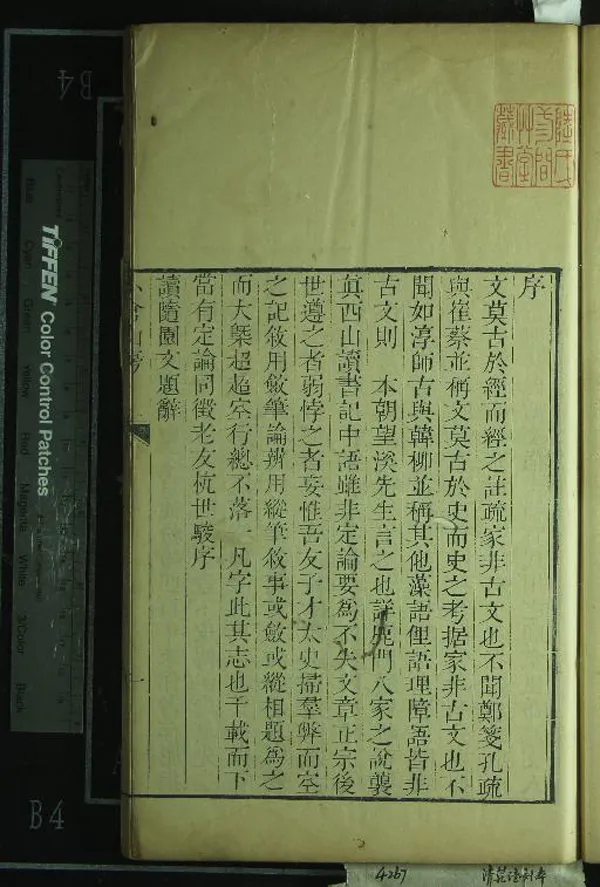 序
文莫古於經而經之註疏家非古文也不聞鄭箋孔疏
與崔蔡並稱文莫古於史而史之考据家非古文也不
聞如淳師古與韓柳並稱其他藻語俚語理障語皆非
古文則 本朝望溪先生言之也詳鹿門八家之說襲
真西山讀書記中語雖非定論要為不失文章正宗後
世遵之者弱悖之者妄惟吾友子才太史掃羣弊而空
之記敘用斂筆論辨用縱筆敘事或斂或縱相題為之
而大槩超超空行總不落一凡字此其志也千載而下
當有定論同徵老友杭世駿序
讀隨園文題辭
小倉山房
一
陸氏
守間
艸堂
藏書
B4
B4
TIFFEN Color Control Patches
Blue
Cyan
Green
Yellow
Red
Magenta
White
3/Color
Black
4267